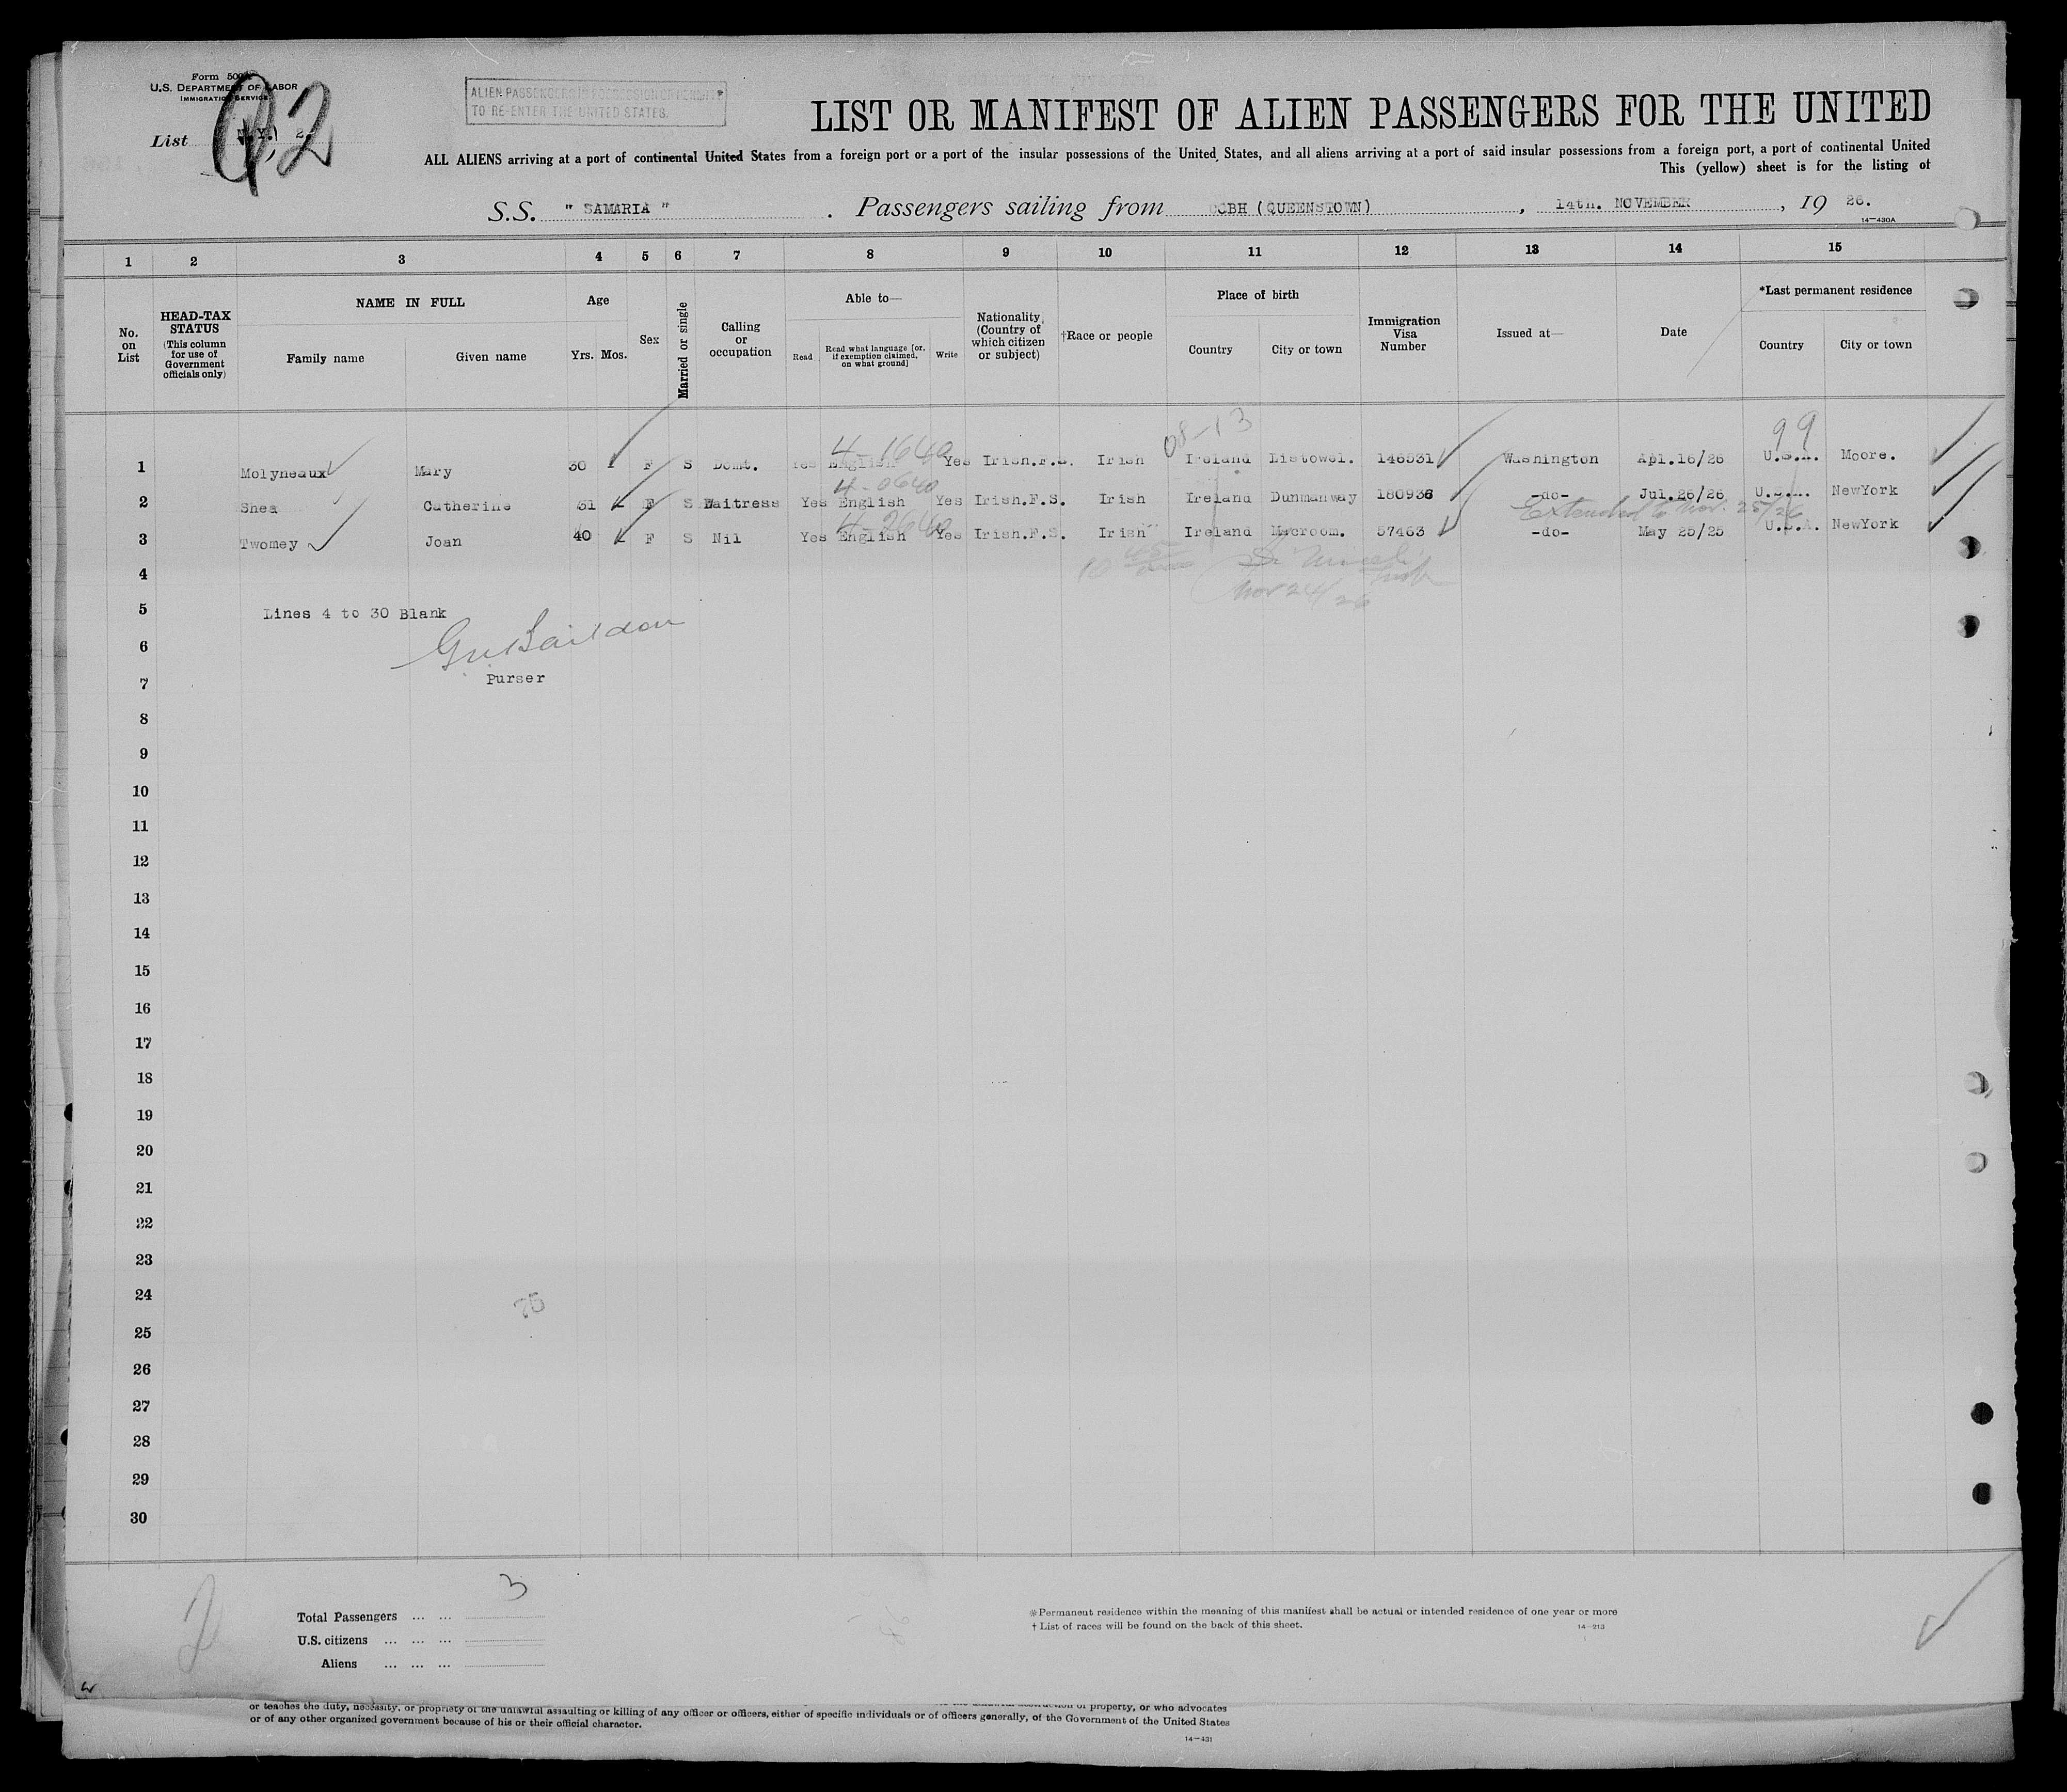 Form 500
U.S. DEPARTMENT OF LABOR
IMMIGRATION SERVICE
List N.Y. 2
92
ALIEN PASSENGERS IN POSSESSION OF PERMITS
TO RE-ENTER THE UNITED STATES.
LIST OR MANIFEST OF ALIEN PASSENGERS FOR THE UNITED
ALL ALIENS arriving at a port of continental United States from a foreign port or a port of the insular possessions of the United States, and all aliens arriving at a port of said insular possessions from a foreign port, a port of continental United
This (yellow) sheet is for the listing of
S.S. " SAMARIA " . Passengers sailing from COBH (QUEENSTOWN) , 14th. NOVEMBER , 19 26.
14—430A
1 2 3 4 5 6 7 8 9 10 11 12 13 14 15
No. on List
HEAD-TAX STATUS (This column for use of Government officials only)
NAME IN FULL
Family name Given name
Age
Yrs. Mos.
Sex
Married or single
Calling or occupation
Able to—
Read Read what language [or, if exemption claimed, on what ground] Write
Nationality (Country of which citizen or subject)
†Race or people
Place of birth
Country City or town
Immigration Visa Number
Issued at—
Date
*Last permanent residence
Country City or town
4-1640 08-13 99
1 Molyneaux Mary 30 F S Domt. Yes English Yes Irish.F.S. Irish Ireland Listowel. 146531 Washington Apl.16/26 U.S.A. Moore.
4-0640
2 Shea Catherine 31 F S Waitress Yes English Yes Irish.F.S. Irish Ireland Dunmanway 180936 -do- Jul.26/26 U.S.A. NewYork
Extended to Nov. 25/26
4-2640
3 Twomey Joan 40 F S Nil Yes English Yes Irish.F.S. Irish Ireland Mycroom. 57463 -do- May 25/25 U.S.A. NewYork
4
Nov 24/26
5 Lines 4 to 30 Blank
6
7 Purser
8
9
10
11
12
13
14
15
16
17
18
19
20
21
22
23
24
25
26
27
28
29
30
3
2
Total Passengers ... ...
U.S. citizens ... ... ...
Aliens ... ... ...
*Permanent residence within the meaning of this manifest shall be actual or intended residence of one year or more
† List of races will be found on the back of this sheet.
14—213
or teaches the duty, necessity, or propriety of the unlawful assaulting or killing of any officer or officers, either of specific individuals or of officers generally, of the Government of the United States
or of any other organized government because of his or their official character.
of property, or who advocates
14—431